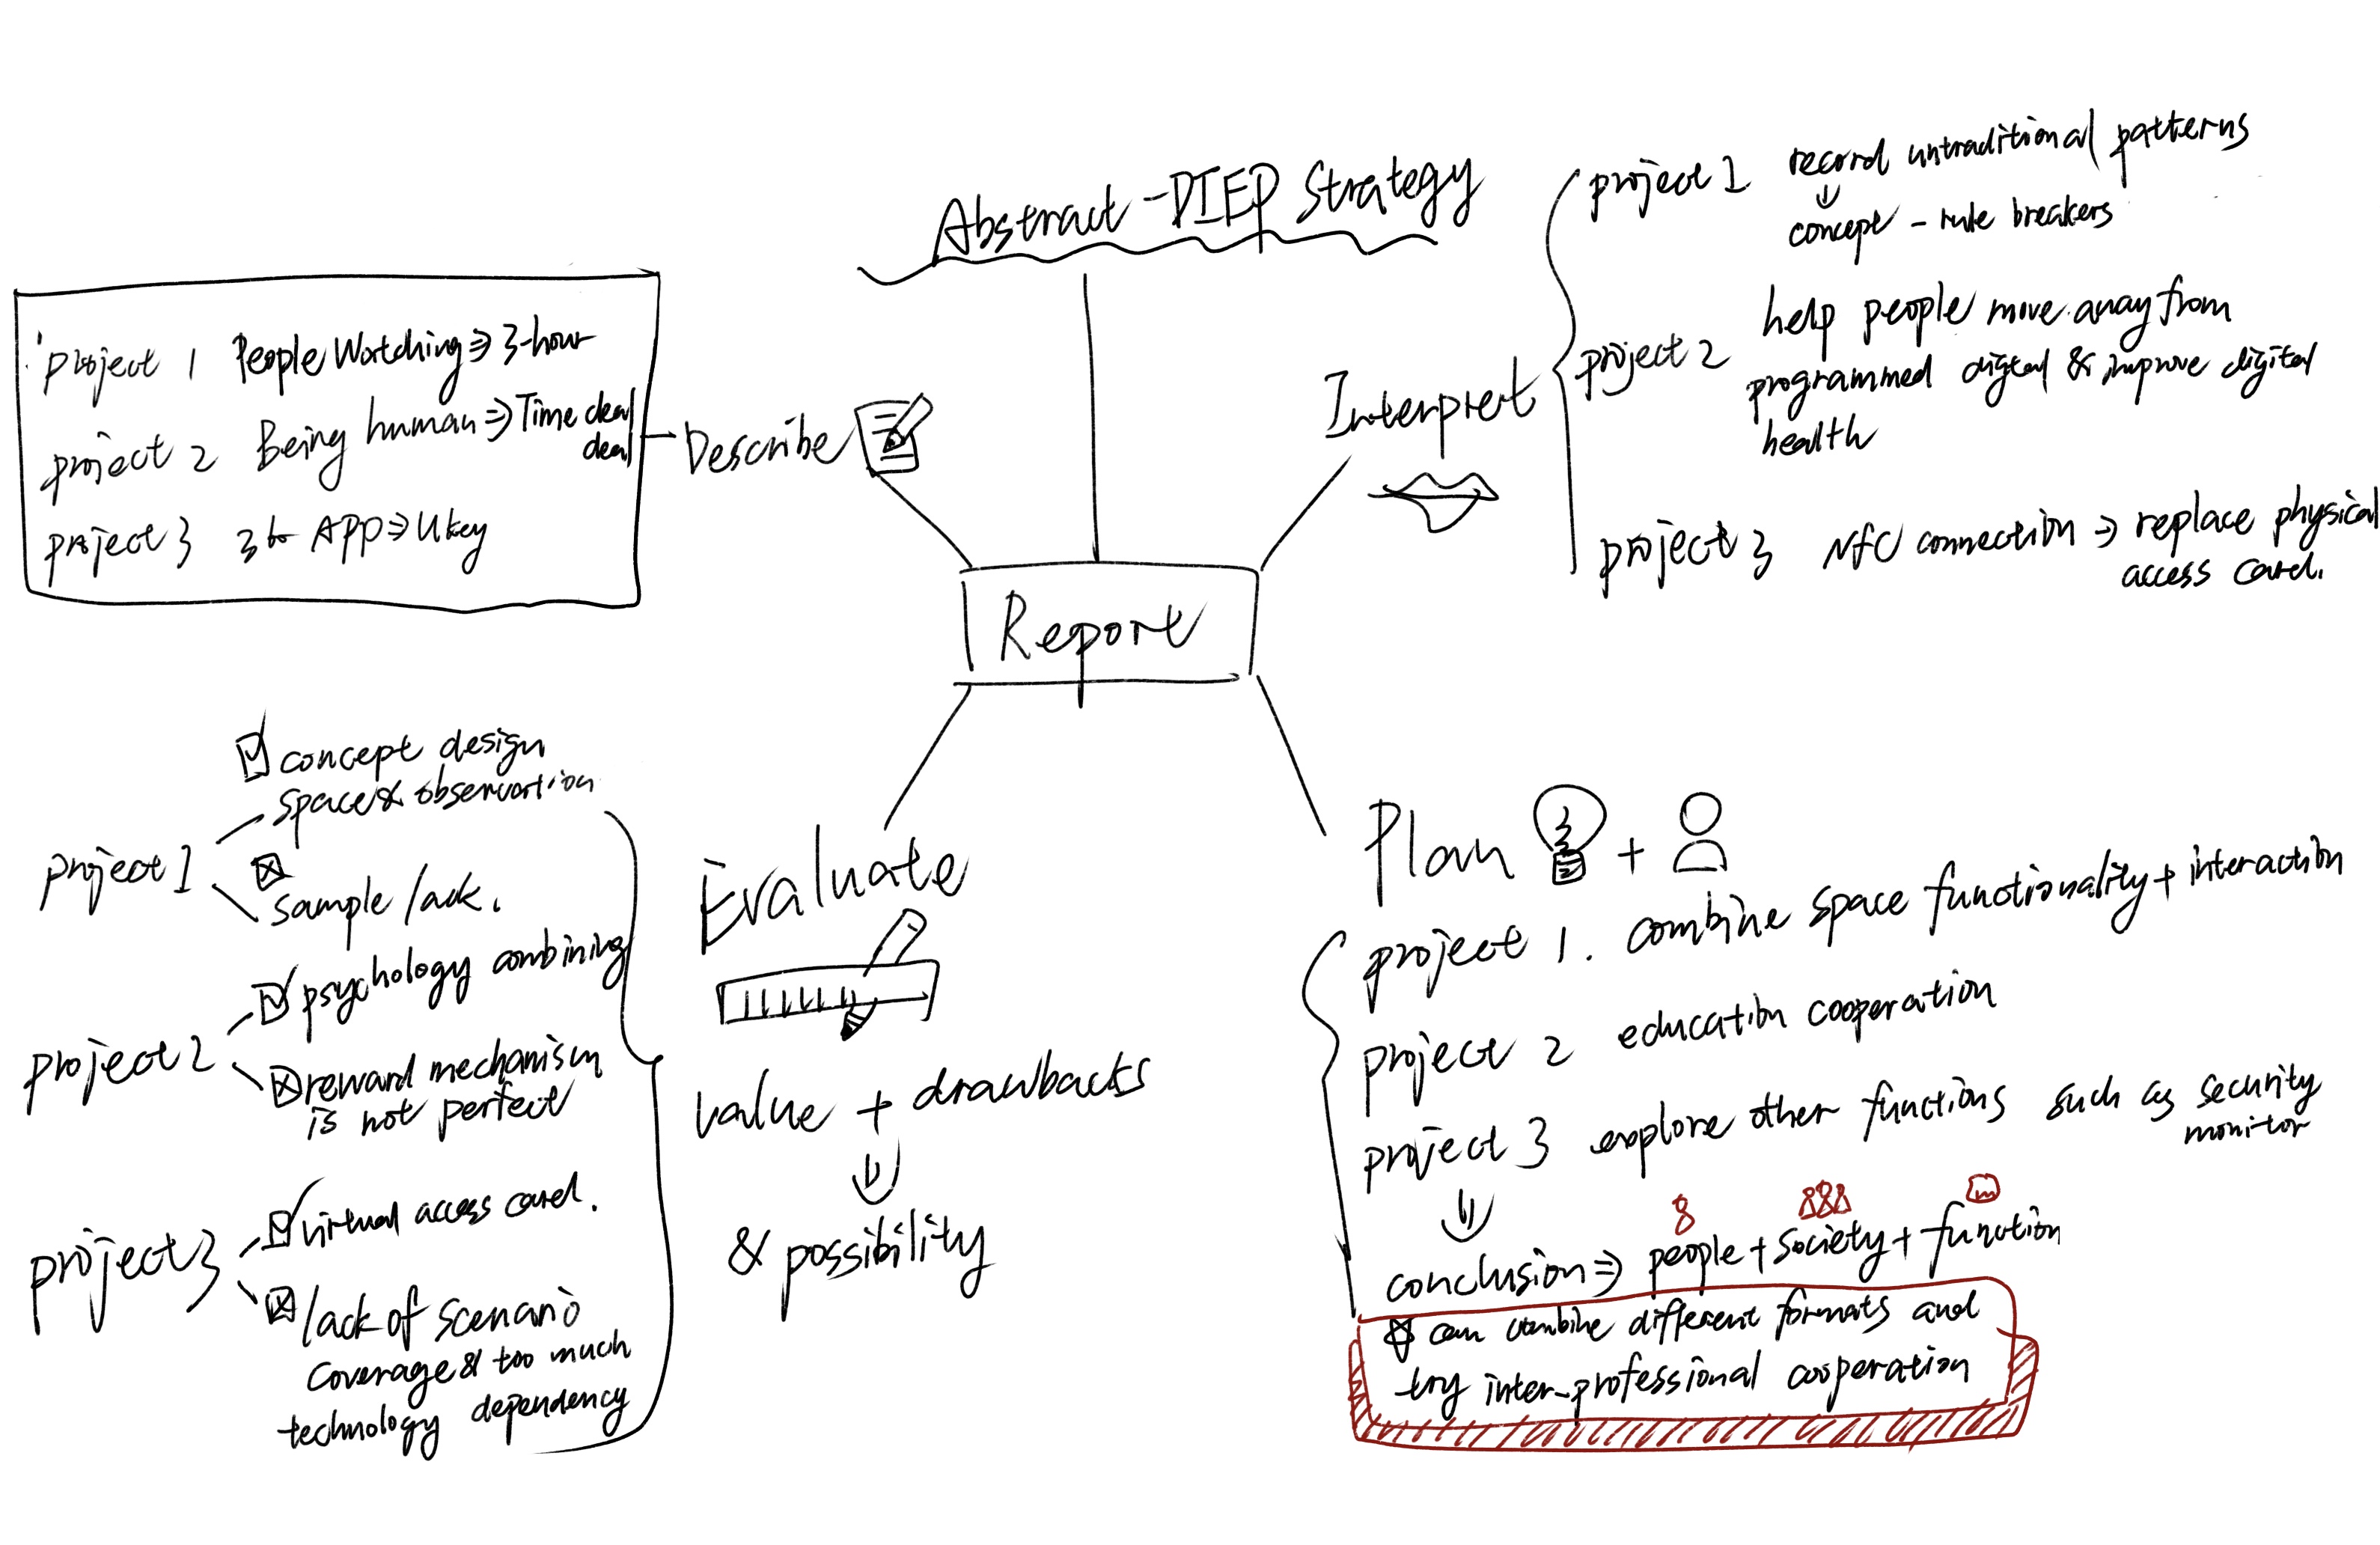 Abstract-DIEP Strategy
Report
Describe
project 1 People Watching ⇒ 3-hour
project 2 Being human ⇒ Time deal
deal
project 3 APP ⇒ Ukey
Interpret
project 1 record untraditional patterns
concept - rule breakers
project 2 help people move away from
programmed digital & improve digital
health
project 3 NFC connection ⇒ replace physical
access card.
Evaluate
value + drawbacks
& possibility
project 1
concept design
space & observation
sample lack.
project 2
psychology combining
reward mechanism
is not perfect
project 3
virtual access card.
lack of scenario
coverage & too much
technology dependency
Plan +
project 1. combine space functionality + interaction
project 2 education cooperation
project 3 explore other functions such as security
monitor
conclusion ⇒ people + society + function
can combine different formats and
try inter-professional cooperation